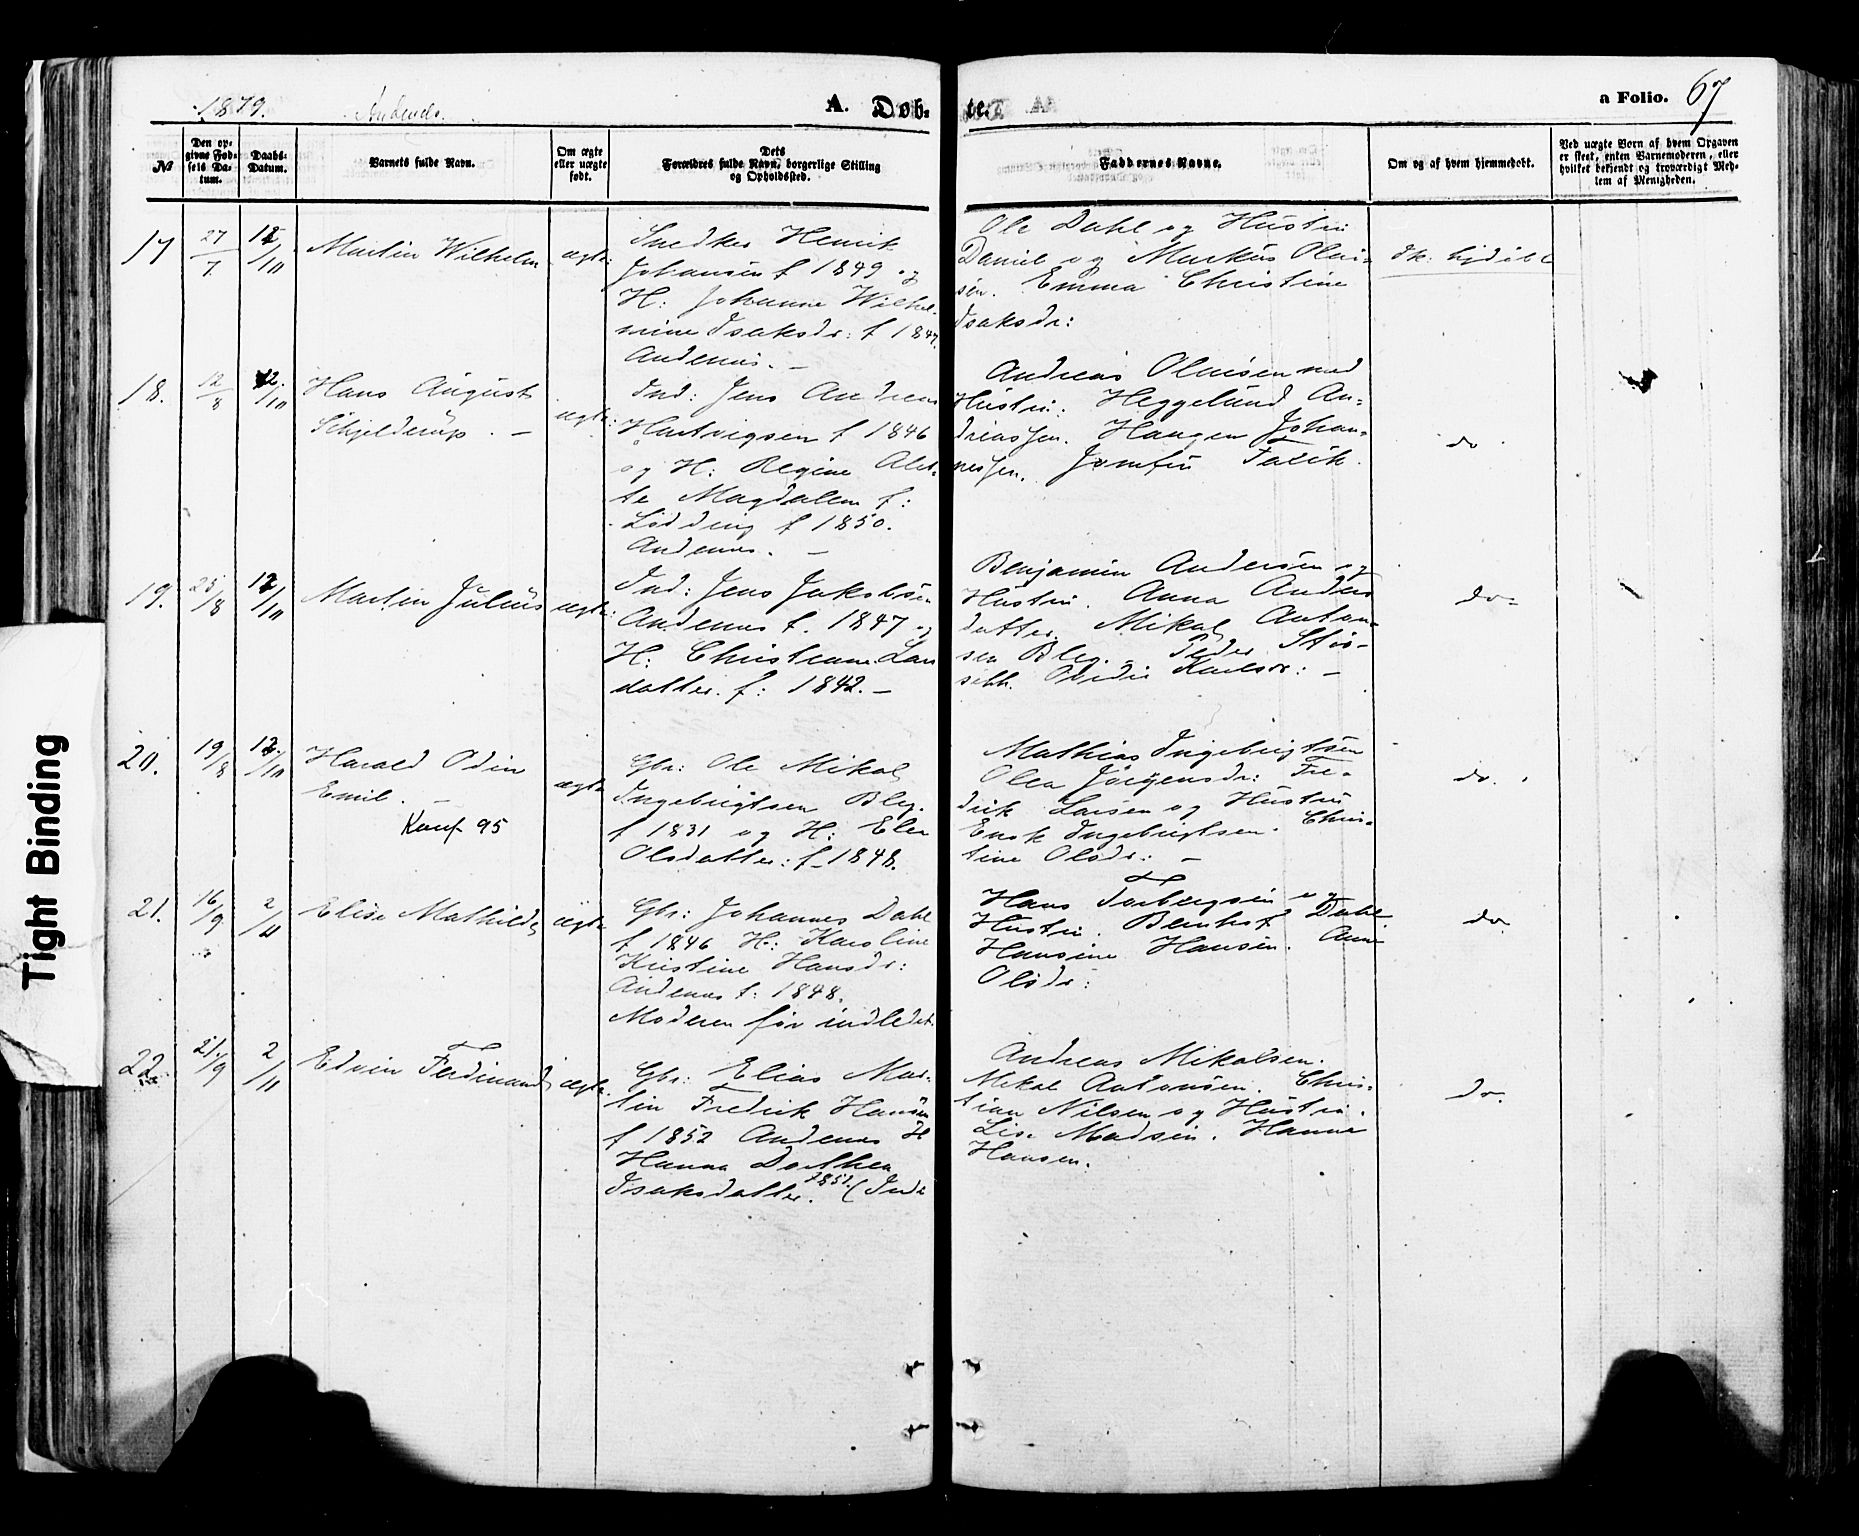 1879. Andenes.
A. Døb-
te.
a Folio. 67
№
Den op-
givne Fød-
sels Da-
tum.
Daabs-
Datum.
Barnets fulde Navn.
Om ægte
eller uægte
født.
Dets
Forældres fulde Navn, borgerlige Stilling
og Opholdssted.
Faddernes Navne.
Om og af hvem hjemmedøbt.
Ved uægte Børn af hvem Opgaven
er skeet, enten Barnemoderen, eller
hvilket bekjendt og troværdigt Med-
lem af Menigheden.
17
27/7
12/10
Martin Wilhelm
ægte
Snedker Henrik
Johansen f 1849 og
H: Johanne Wilhel-
mine Isaksdr: f 1847.
Andenes. –
Ole Dahl og Hustru
Daniel og Markus Olai-
sen. Emma Christine
Isaksdr:
18.
12/8
12/10
Hans August
Schjelderup. –
ægte:
Ind: Jens Andreas
Hartvigsen f 1846
og H: Regine Alet-
te Magdalena f:
Lødding f 1850.
Andenes. –
Andreas Olaisen med
Hustru. Heggelund An-
dreassen. Haagen Johan-
nessen. Jomfru Falck.
do
19.
25/8
12/10
Martin Julius
ægte:
Ind: Jens Jakobsen
Andenes f. 1847 og
H: Christiane Lars
datter. f: 1842. –
Benjamin Andersen og
Hustru. Anna Anders
datter. Mikal Anton-
sen Bleg. Peder
Karlsdr: –
do
20.
19/8
12/10
Harald Odin
Emil. –
Konf 95
ægte
Gbr: Ole Mikal
Ingebrigtsen Bleg.
f 1831 og H: Elen
Olsdatter: f 1848.
Mathias Ingebrigtsen
Olea Jörgensdr: Fre-
drik Larsen og Hustru
Enok Ingebrigtsen. Chris-
tine Olsdr: –
do.
21.
16/9
2/11
Elise Mathilde
ægte
Gbr: Johannes Dahl
f 1846 H: Karoline
Kristine Hansdr:
Andenes f: 1848.
Moderen før indledet.
Hans Torbergsen og
Hustru. Bernhof Dahl
Hansine Hansen. Anne
Olsdr:
do
22.
21/9
2/11
Edvin Ferdinand
ægte.
Gbr: Elias Mar-
tin Fredrik Hansen
f 1852 Andenes H
Hanna Dorthea
Isaksdatter. f 1851. (Inde
Andreas Mikalsen.
Mikal Antonsen. Chris-
tian Nilsen og Hustru.
Lise Madsen. Hanna
Hansen.
do.
Tight Binding